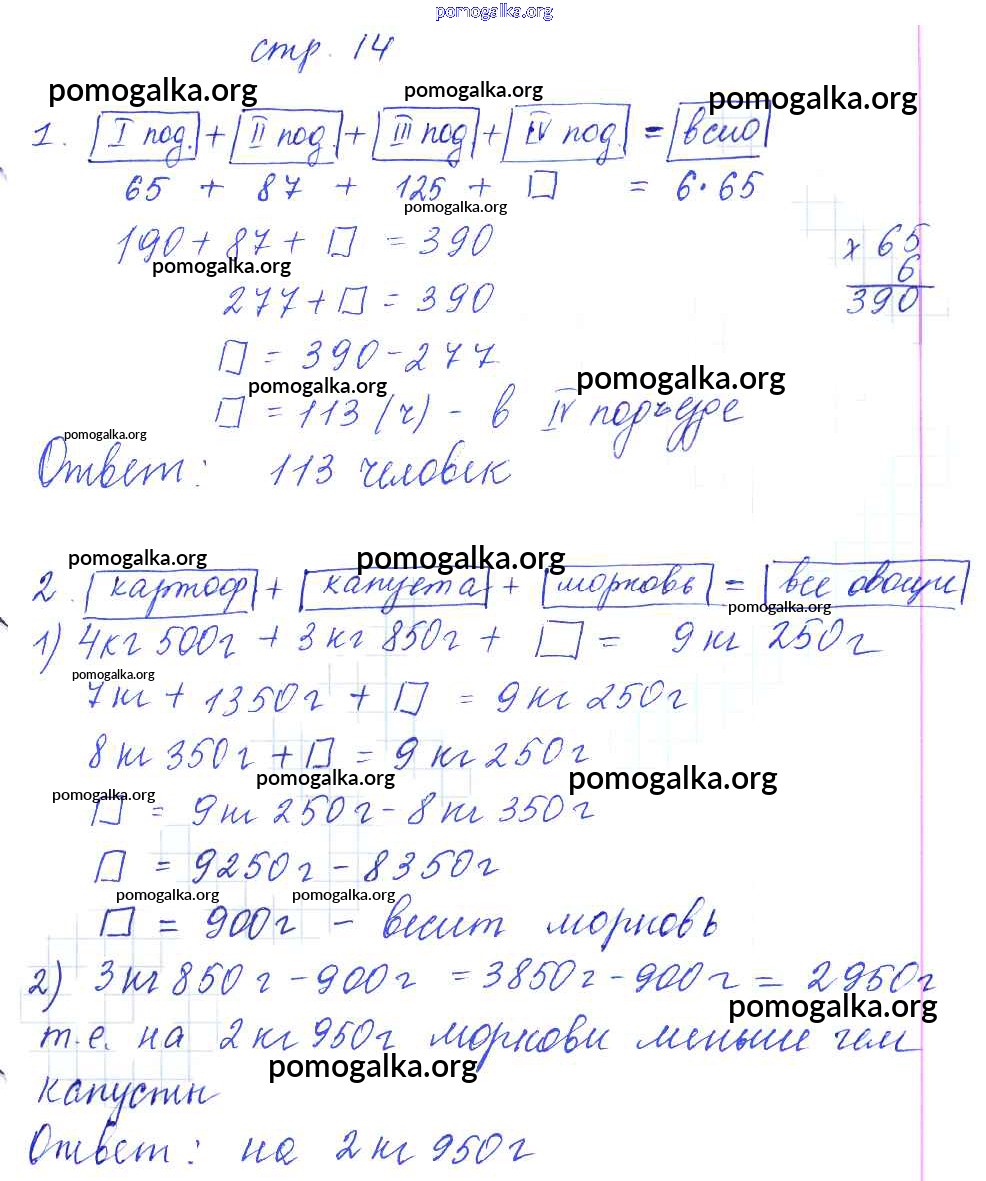 pomogalka.org
стр. 14
pomogalka.org pomogalka.org pomogalka.org
1. I под. + II под. + III под + IV под. = всего
65 + 87 + 125 + □ = 6·65
pomogalka.org
190 + 87 + □ = 390
× 65
6
390
pomogalka.org
277 + □ = 390
□ = 390 - 277
pomogalka.org pomogalka.org
□ = 113 (ч) - в IV подъезде
pomogalka.org
Ответ: 113 человек
pomogalka.org pomogalka.org
2. картоф + капуста + морковь = все овощи
pomogalka.org
1) 4кг 500г + 3кг 850г + □ = 9кг 250г
pomogalka.org
7кг + 1350г + □ = 9кг 250г
8кг 350г + □ = 9кг 250г
pomogalka.org pomogalka.org
pomogalka.org
□ = 9кг 250г - 8кг 350г
□ = 9250г - 8350г
pomogalka.org pomogalka.org
□ = 900г - весит морковь
2) 3кг 850г - 900г = 3850г - 900г = 2950г
pomogalka.org
т.е. на 2кг 950г моркови меньше чем
pomogalka.org
капусты
Ответ: на 2кг 950г